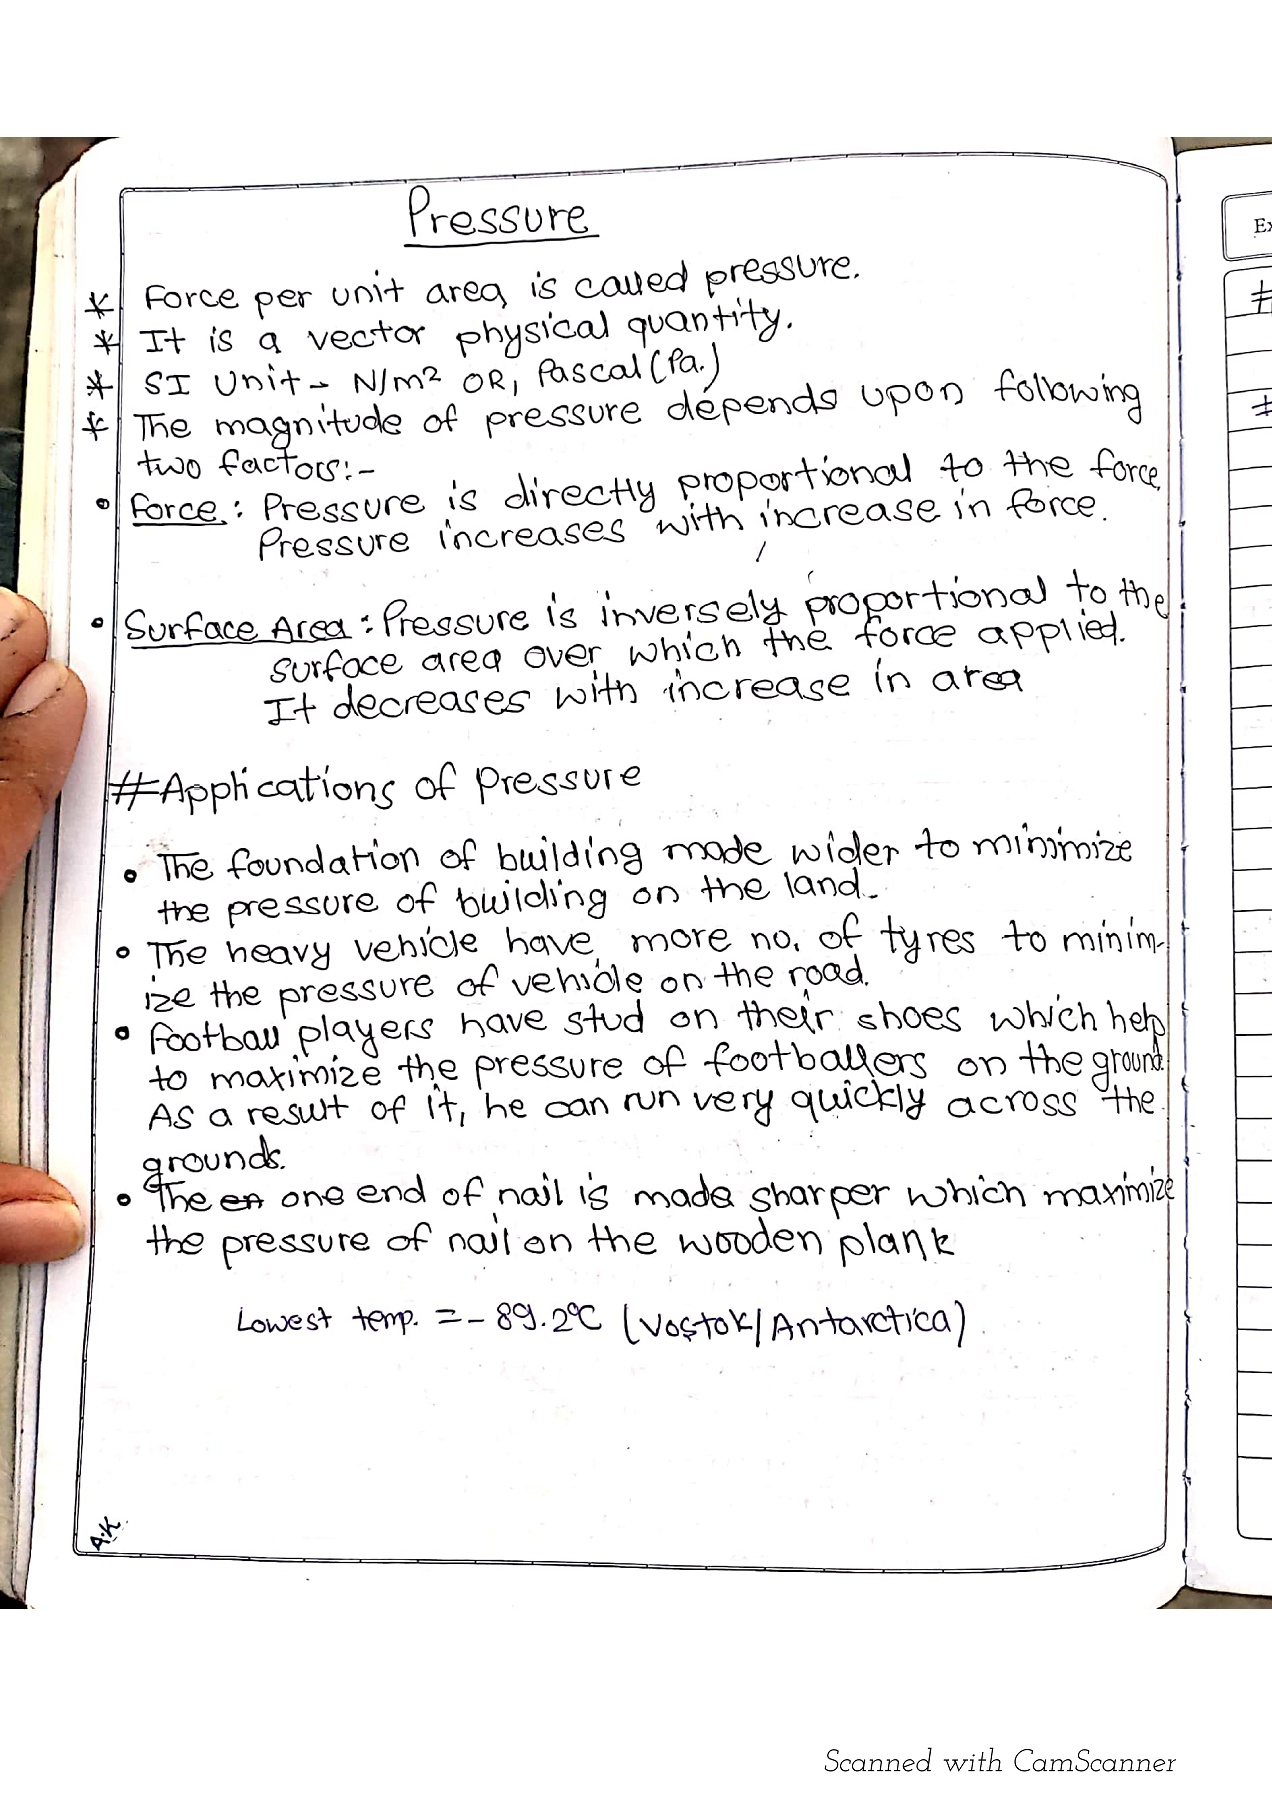 Pressure
* Force per unit area is called pressure.
* It is a vector physical quantity.
* SI Unit - N/m² OR, Pascal (Pa.)
* The magnitude of pressure depends upon following
two factors:-
• Force : Pressure is directly proportional to the force.
Pressure increases with increase in force.
• Surface Area : Pressure is inversely proportional to the
surface area over which the force applied.
It decreases with increase in area
# Applications of pressure
• The foundation of building made wider to minimize
the pressure of building on the land.
• The heavy vehicle have more no. of tyres to minim-
ize the pressure of vehicle on the road.
• Football players have stud on their shoes which help
to maximize the pressure of footballers on the ground.
As a result of it, he can run very quickly across the
grounds.
• The en one end of nail is made sharper which maximize
the pressure of nail on the wooden plank
Lowest temp. = - 89.2°C (Vostok/Antarctica)
A.K
Ex
#
#
Scanned with CamScanner